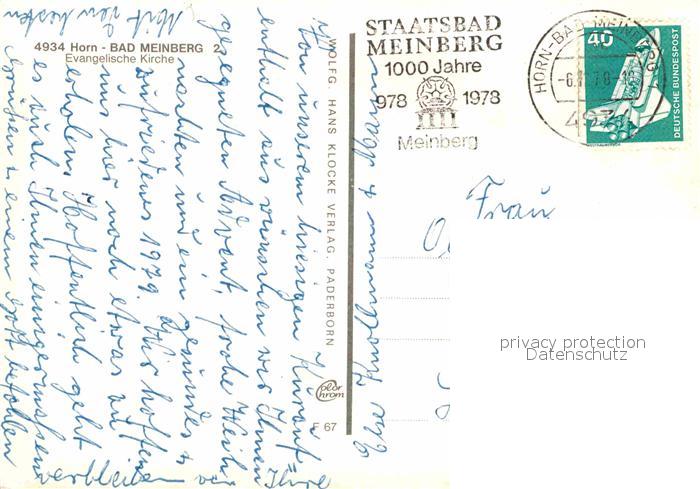 4934 Horn - BAD MEINBERG 2
Evangelische Kirche
STAATSBAD
MEINBERG
1000 Jahre
978 1978
Meinberg
HORN-BAD MEINBERG
40
DEUTSCHE BUNDESPOST
WOLFG. HANS KLOCKE VERLAG, PADERBORN
color
chrom
F 67
Frau
privacy protection
Datenschutz
Von unserem hiesigen Kurauf-
enthalt aus wünschen wir Ihnen
gesegneten Advent, frohe Weih-
nachten und ein gesundes &
zufriedenes 1979. Wir hoffen
uns hier noch etwas zu
erholen. Hoffentlich geht
es auch Ihnen einigermaßen
Grüßen & einem Gott befohlen
Mit den besten
verbleiben wir
Ihre